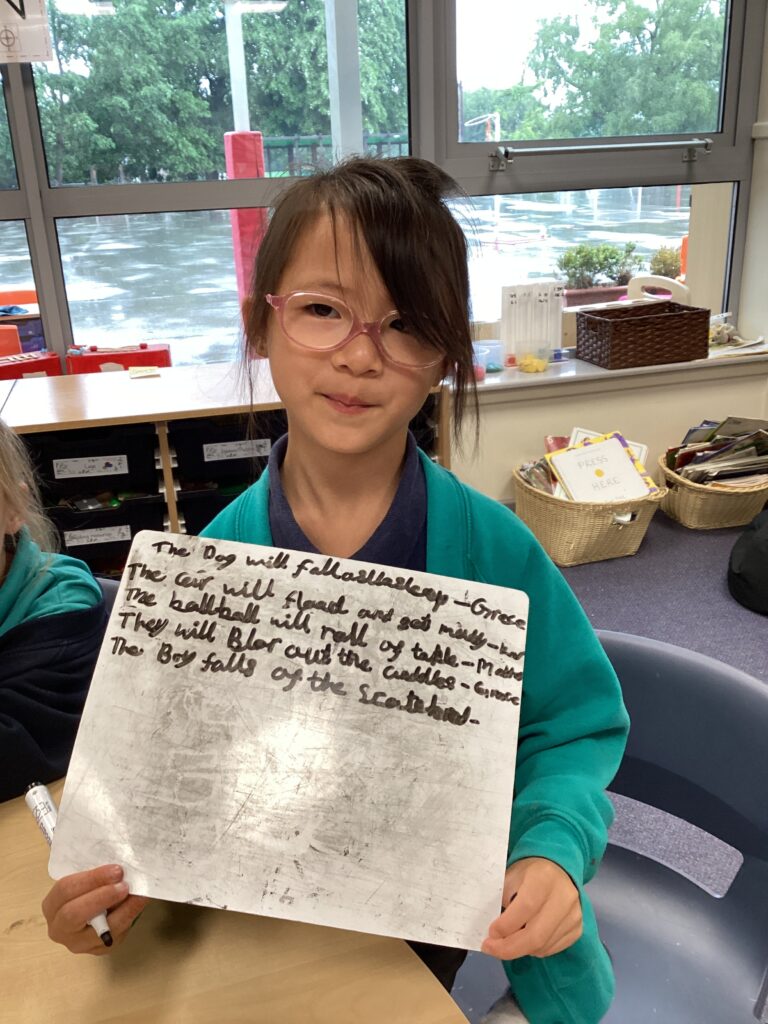 The Dog will fall asleep - Grace
The car will flood and get muddy -
The ballball will roll of table -
They will Blor out the candles - Grace
The Boy falls of the Scateboard -
PRESS
HERE